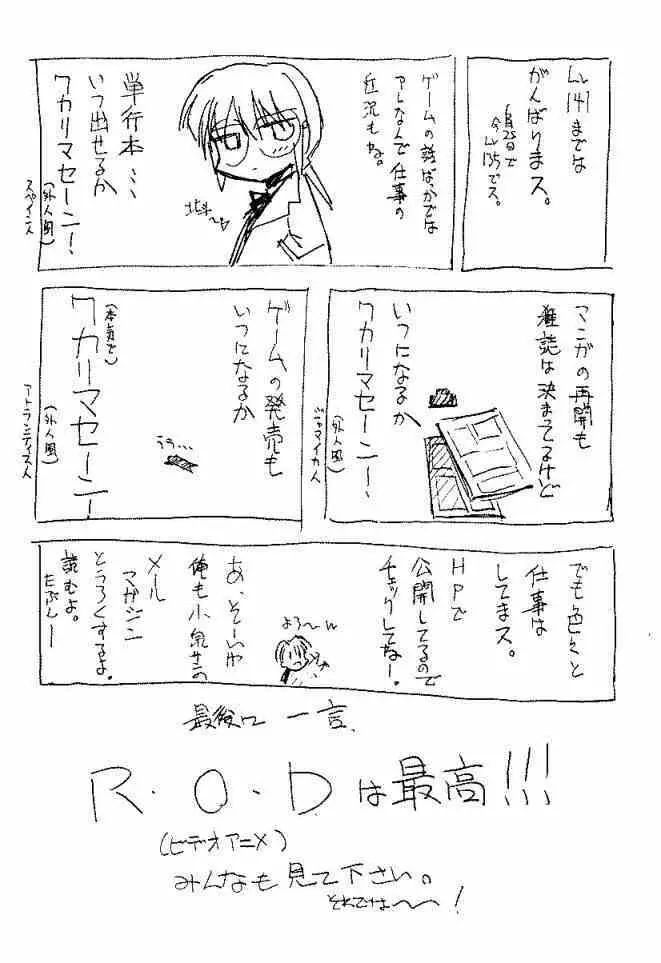 Lv 141までは
がんばりまス。
6月25日で
今Lv135でス。
ゲームの話ばっかでは
アレなんで仕事の
近況もね。
単行本…
いつ出せるか
ワカリマセーン!
(外人風)
スペイン人
マンガの再開も
雑誌は決まってるけど
いつになるか
ワカリマセーン!
(外人風)
ジャマイカ人
ゲームの発売も
いつになるか
うう…
(本気で)
ワカリマセーン!
(外人風)
アトランティス人
でも色々と
仕事は
してまス。
HPで
公開してるので
チェックしてねー!
よろ〜w
あ、そーいや
俺も小泉サンの
メール
マガジン
とうろくするよ。
読むよ。
たぶんー
最後に一言、
R.O.Dは最高!!!
(ビデオアニメ)
みんなも見て下さい。
それでは〜〜!